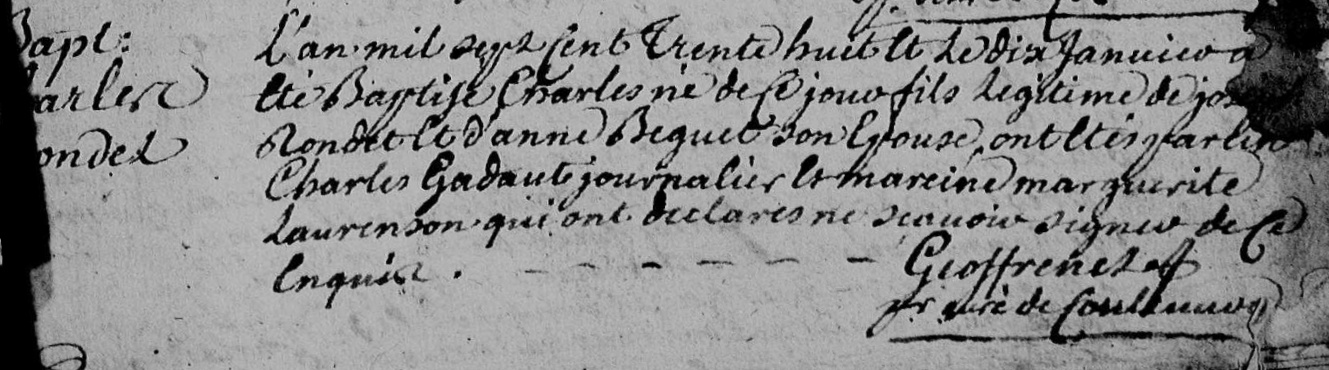 Bapt:
Charles
Rondet
L'an mil sept cent Trente huit et le dix Janvier a
été Baptisé Charles né de ce jour fils legitime de joseph
Rondet et d'anne Beguet son Epouse, ont etés parlin
Charles Gadaut journalier et mareine marguerite
Laurenson qui ont declarés ne scavoir signer de ce
Enquis.
Geoffrenet
curé de